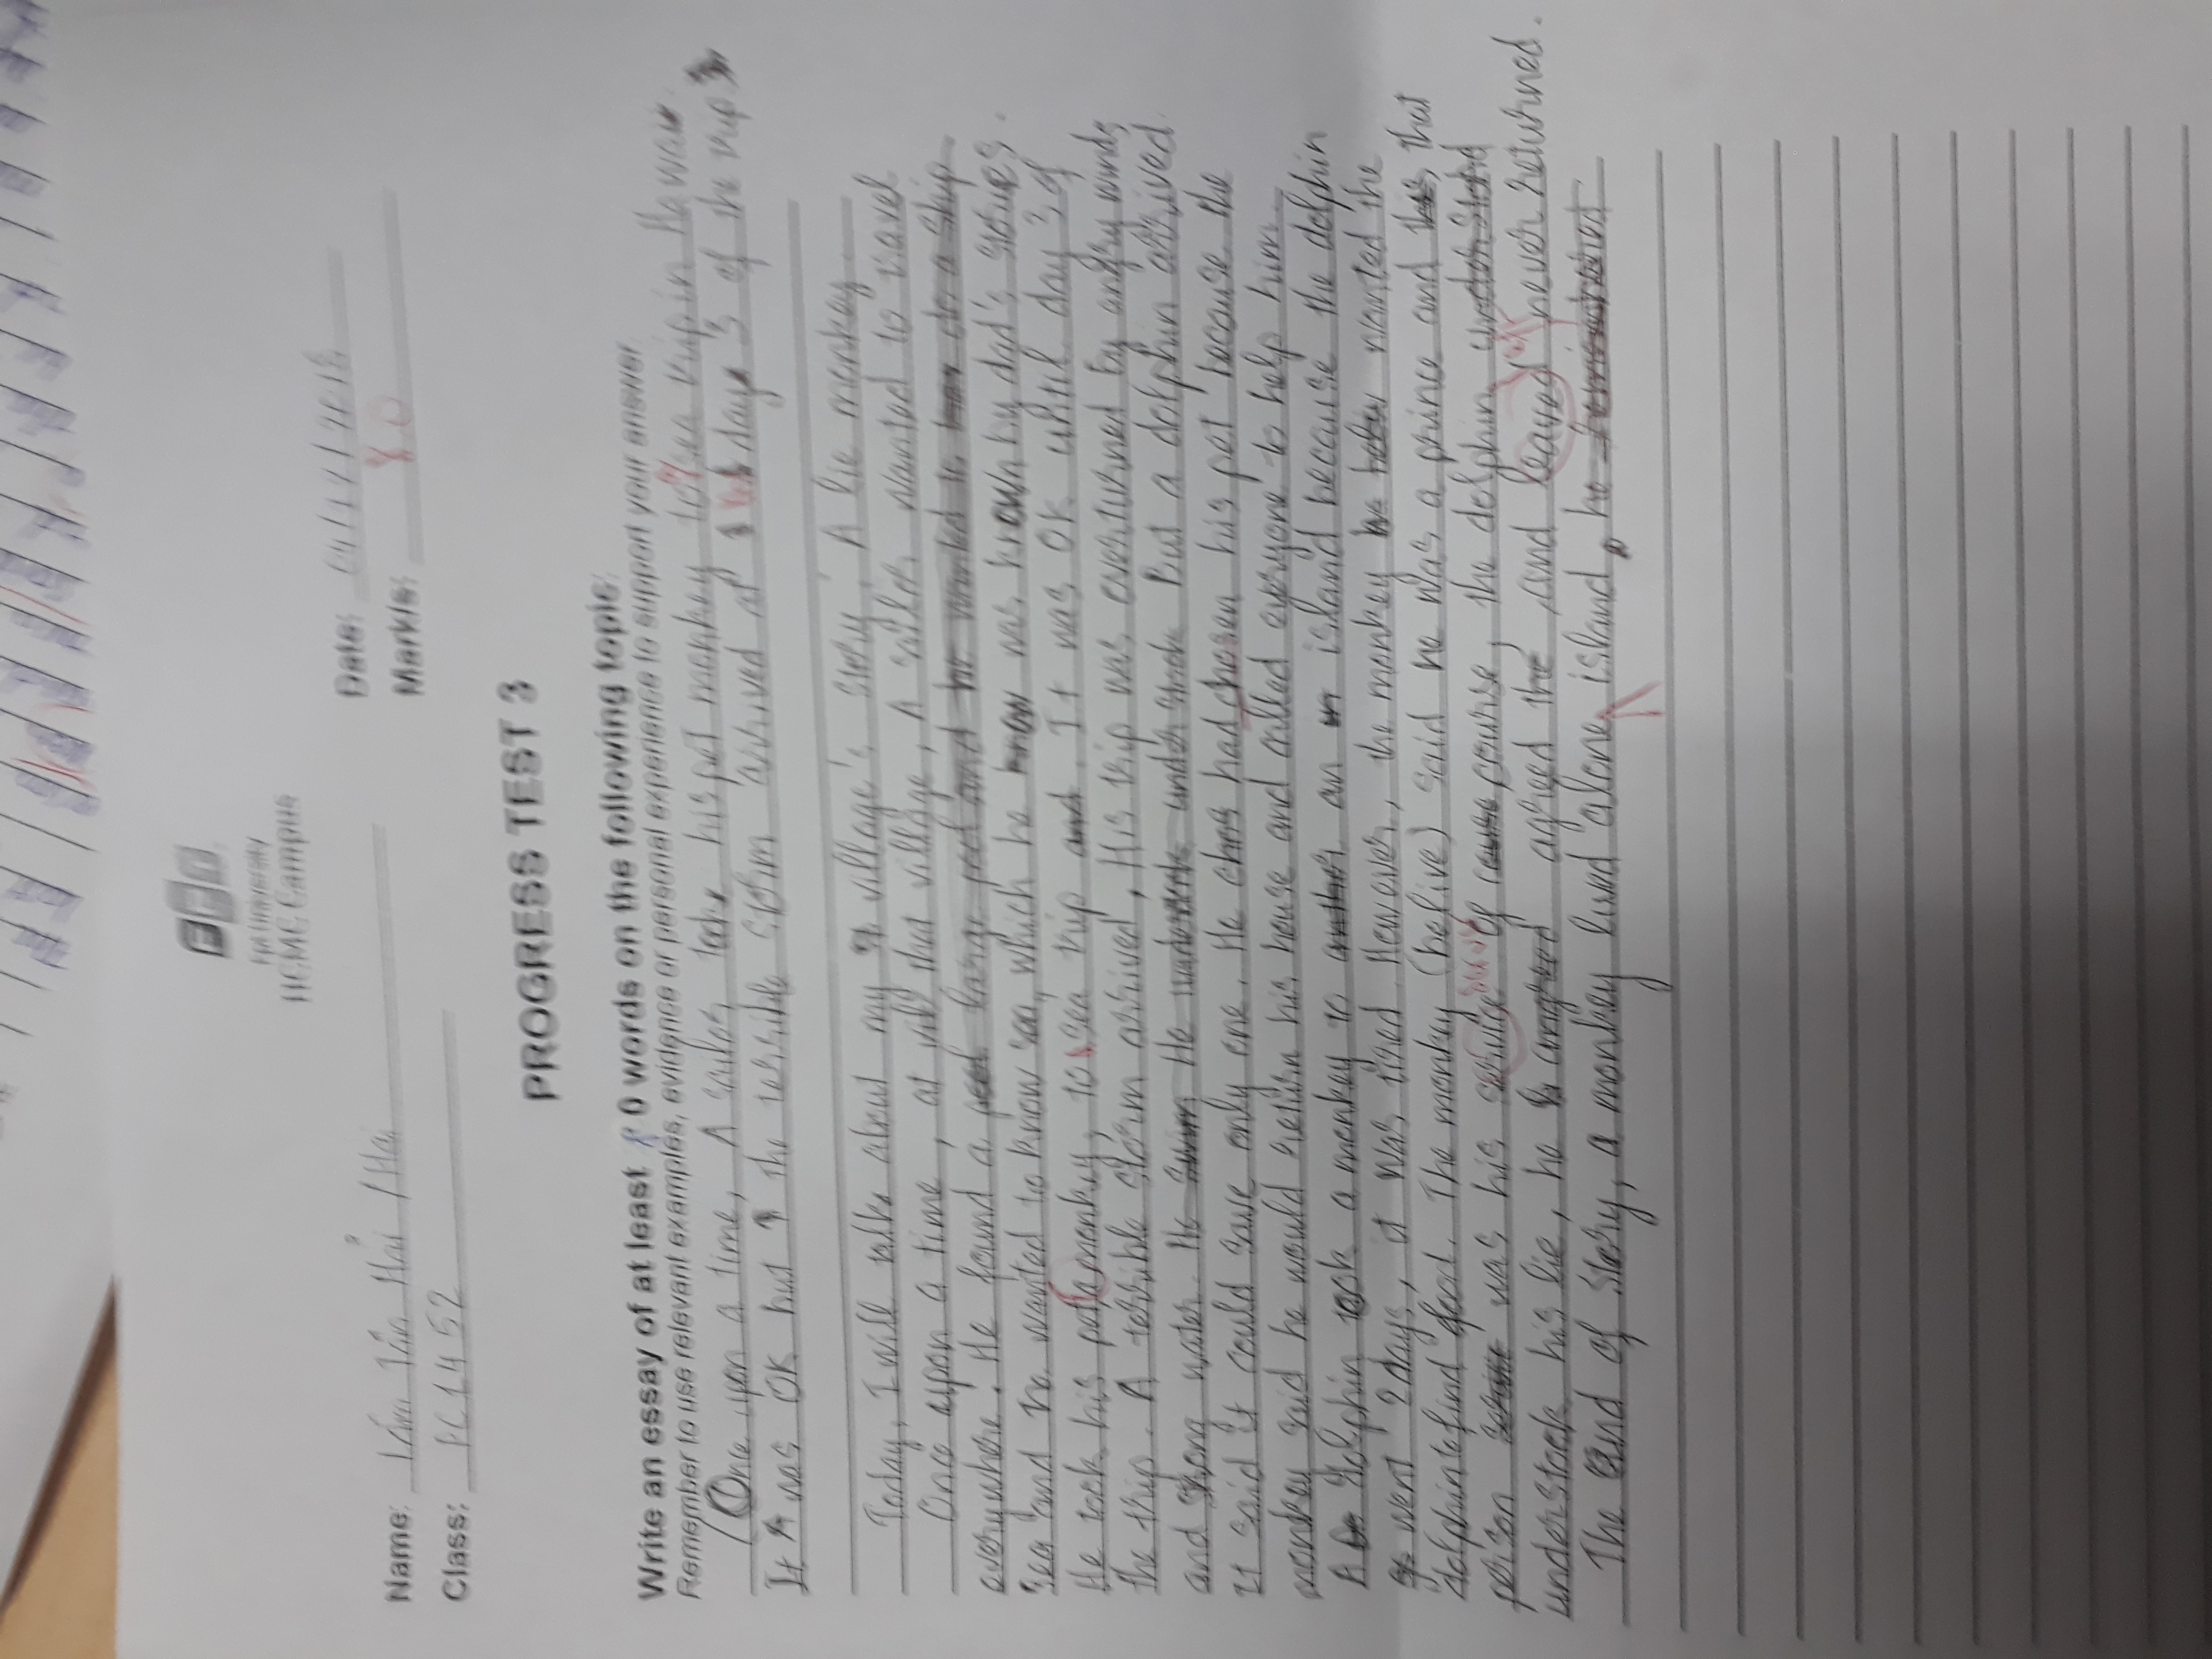 FPT
Fpt University
HCMC Campus
Date: 04/12/2018
Name: Lâm Tấn Hải / Hai
Mark/s: 8.0
Class: PC1452
PROGRESS TEST 3
Write an essay of at least 0 words on the following topic:
Remember to use relevant examples, evidence or personal experience to support your answer.
(Once upon a time, A sailor took his pet monkey to sea trip in Hawaii
It was OK but the terrible storm arrived at day 3 of the trip
Today, I will talk about my village's story: A lie monkey.
Once upon a time, at that village, A sailor wanted to travel
everywhere. He found a large and he wanted to do a ship
sea and he wanted to know sea, which he know was known by dad's stories.
He took his pet, a monkey, to sea trip and. It was OK until day 3 of
the trip. A terrible storm arrived, His trip was overturned by angry winds
and strong water. He swim He understook But a dolphin arrived.
It said it could save only one. He chos had chosen his pet because the
monkey said he would return his house and called everyone to help him.
A dolphin took a monkey to an island because the dolphin
went 2 days, it was tired. However, the monkey wanted the
dolphin to find food. The monkey (belive) said he was a prince and that
person was his service Of course, the dolphin understand
understook his lie, he agreed the and leaved never returned.
The End of Story, a monkey lived alone island, he